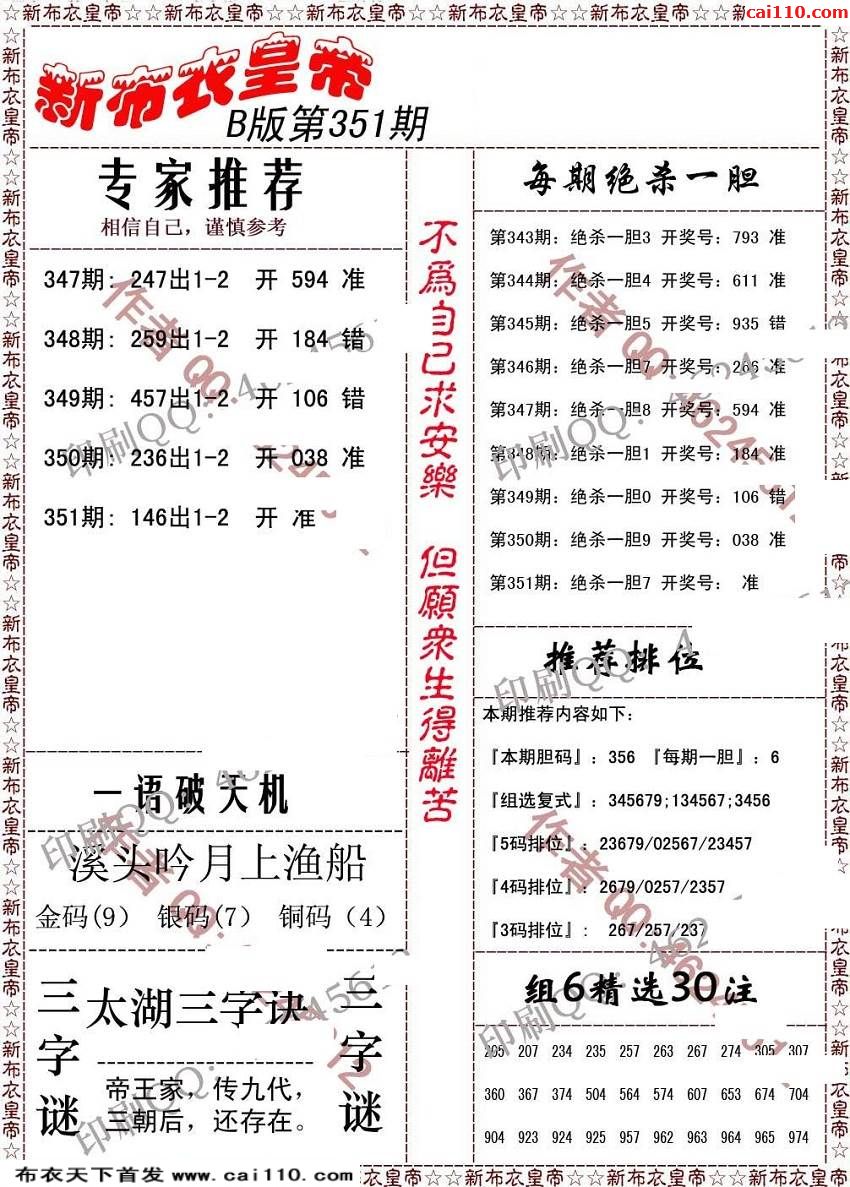 ☆☆新布衣皇帝☆☆新布衣皇帝☆☆新布衣皇帝☆☆新布衣皇帝☆☆新布衣皇帝☆☆
cai110.com
新布衣皇帝
B版第351期
专家推荐
相信自己，谨慎参考
347期: 247出1-2 开 594 准
348期: 259出1-2 开 184 错
349期: 457出1-2 开 106 错
350期: 236出1-2 开 038 准
351期: 146出1-2 开 准
不為自己求安樂 但願眾生得離苦
每期绝杀一胆
第343期: 绝杀一胆3 开奖号: 793 准
第344期: 绝杀一胆4 开奖号: 611 准
第345期: 绝杀一胆5 开奖号: 935 错
第346期: 绝杀一胆7 开奖号: 266 准
第347期: 绝杀一胆8 开奖号: 594 准
第348期: 绝杀一胆1 开奖号: 184 准
第349期: 绝杀一胆0 开奖号: 106 错
第350期: 绝杀一胆9 开奖号: 038 准
第351期: 绝杀一胆7 开奖号: 准
推荐排位
本期推荐内容如下:
『本期胆码』: 356 『每期一胆』: 6
『组选复式』: 345679;134567;3456
『5码排位』: 23679/02567/23457
『4码排位』: 2679/0257/2357
『3码排位』: 267/257/237
一语破天机
溪头吟月上渔船
金码(9) 银码(7) 铜码（4）
三字谜
太湖三字诀
帝王家，传九代，
二朝后，还存在。
三字谜
组6精选30注
205 207 234 235 257 263 267 274 305 307
360 367 374 504 564 574 607 653 674 704
904 923 924 925 957 962 963 964 965 974
布衣天下首发 www.cai110.com
作者QQ:
印刷QQ: